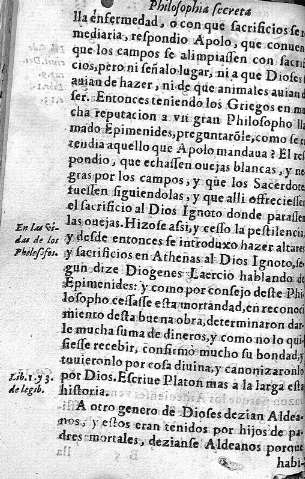 Philosophia secreta
lla enfermedad, o con que sacrificios se re
mediaria, respondio Apolo, que conuen
que los campos se alimpiassen con sacrifi
cios, pero ni señalo lugar, ni a que Dioses
auian de hazer, ni de que animales auian d
ser. Entonces teniendo los Griegos en mu
cha reputacion a vn gran Philosopho lla
mado Epimenides, preguntarõle, como se en
tendia aquello que Apolo mandaua? El res
pondio, que echassen ouejas blancas, y ne
gras por los campos, y que los Sacerdote
fuessen siguiendolas, y que alli offreciessen
el sacrificio al Dios Ignoto donde parassen
las ouejas. Hizose assi, y cesso la pestilencia,
En las Vi-
das de los
Philosofos.
y desde entonces se introduxo hazer altares
y sacrificios en Athenas al Dios Ignoto, se
gun dize Diogenes Laercio hablando de
Epimenides: y como por consejo deste Phi
losopho cessasse esta mortandad, en reconoci
miento desta buena obra, determinaron dar
le mucha suma de dineros, y como no lo qui
siesse recebir, confirmò mucho su bondad, y
tuuieronlo por cosa diuina, y canonizaronlo
Lib. 1. y 3.
de legib.
por Dios. Escriue Platon mas a la larga esta
historia.
A otro genero de Dioses dezian Aldea-
nos, y estos eran tenidos por hijos de pa-
dres mortales, dezianse Aldeanos porque
habi-